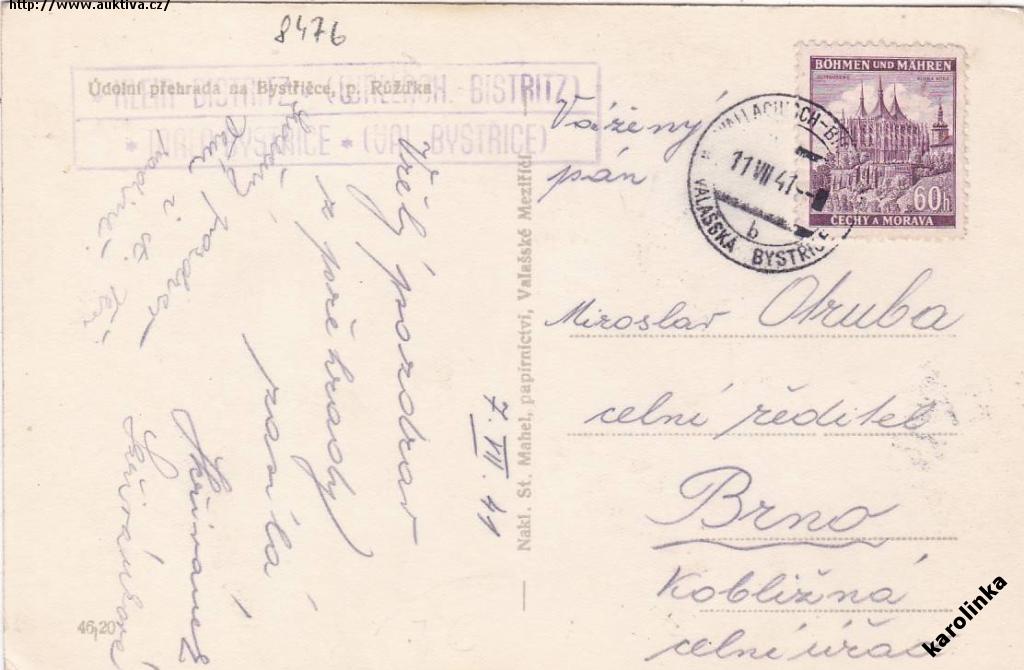 http://www.auktiva.cz/
8476
Údolní přehrada na Bystřičce, p. Růžďka
KLEIN BISTRITZ (WALLACH. BISTRITZ)
* MALÁ BYSTŘICE * (VAL. BYSTŘICE)
BÖHMEN UND MÄHREN
60h
ČECHY A MORAVA
WALLACHISCH-BIS
11 VII 41
b
VALAŠSKÁ BYSTŘICE
Vřelý pozdrav
z pře hrady
zasílá
7. VII. 41
Nakl. St. Mahel, papírnictví, Valašské Meziříčí
Vážený
pán
Miroslav Otruba
celní ředitel
Brno
Kobližná
celní úřad
46,20
karolinka